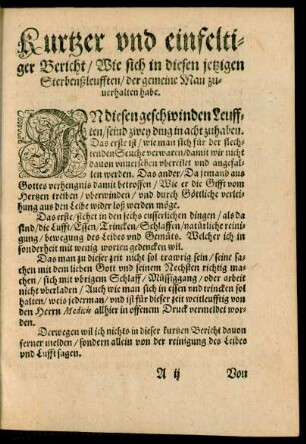 Kurtzer vnd einfelti-
ger Bericht / Wie sich in diesen jetzigen
Sterbenßleufften / der gemeine Man zu-
uerhalten habe.
IN diesen geschwinden Leuff-
ten / seind zwey ding in acht zuhaben.
Das erste ist / wie man sich für der flech-
tenden Seuche verwaren / damit wir nicht
dauon vnuersehen vbereilet vnd angefal-
len werden. Das ander / Da jemand aus
Gottes verhengnis damit betroffen / Wie er die Gifft vom
Hertzen treiben / vberwinden / vnd durch Göttliche verlei-
hung aus den Leibe wider loß werden möge.
Das erste / stehet in den sechs eusserlichen dingen / als da
sind / die Lufft / Essen / Trincken / Schlaffen / natürliche reini-
gung / bewegung des Leibes vnd Gemüts. Welcher ich in
sonderheit mit wenig worten gedencken wil.
Das man zu dieser zeit nicht sol trawrig sein / seine sa-
chen mit dem lieben Gott vnd seinem Nechsten richtig ma-
chen / sich mit vbrigem Schlaff / Müssiggang / oder arbeit
nicht vberladen / Auch wie man sich in essen vnd trincken sol
halten / weis jederman / vnd ist für dieser zeit weitleufftig von
den Herrn Medicis allhier in offenem Druck vermeldet wor-
den.
Derwegen wil ich nichts in dieser kurtzen Bericht dauon
ferner melden / sondern allein von der reinigung des Leibes
vnd Lufft sagen.
A ij
Von